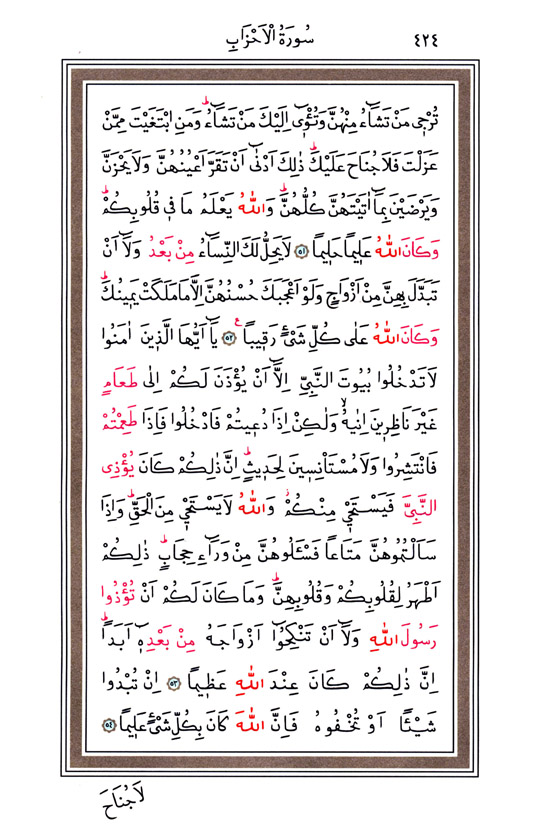 سُورَةُ الْاَحْزَابِ ٤٢٤
تُرْجِى مَنْ تَشَٓاءُ مِنْهُنَّ وَتُـْٔوٓى اِلَيْكَ مَنْ تَشَٓاءُۜ وَمَنِ ابْتَغَيْتَ مِمَّنْ
عَزَلْتَ فَلَا جُنَاحَ عَلَيْكَۜ ذٰلِكَ اَدْنٰٓى اَنْ تَقَرَّ اَعْيُنُهُنَّ وَلَا يَحْزَنَّ
وَيَرْضَيْنَ بِمَٓا اٰتَيْتَهُنَّ كُلُّهُنَّۜ وَاللّٰهُ يَعْلَمُ مَا فِى قُلُوبِكُمْۜ
وَكَانَ اللّٰهُ عَلِيمًا حَلِيمًا ﴿٥١﴾ لَا يَحِلُّ لَكَ النِّسَٓاءُ مِنْ بَعْدُ وَلَٓا اَنْ
تَبَدَّلَ بِهِنَّ مِنْ اَزْوَاجٍ وَلَوْ اَعْجَبَكَ حُسْنُهُنَّ اِلَّا مَا مَلَكَتْ يَمِينُكَۜ
وَكَانَ اللّٰهُ عَلٰى كُلِّ شَىْءٍ رَقِيبًا ع ﴿٥٢﴾ يَٓا اَيُّهَا الَّذِينَ اٰمَنُوا
لَا تَدْخُلُوا بُيُوتَ النَّبِىِّ اِلَّٓا اَنْ يُؤْذَنَ لَكُمْ اِلٰى طَعَامٍ
غَيْرَ نَاظِرِينَ اِنٰيهُۙ وَلٰكِنْ اِذَا دُعِيتُمْ فَادْخُلُوا فَاِذَا طَعِمْتُمْ
فَانْتَشِرُوا وَلَا مُسْتَاْنِسِينَ لِحَدِيثٍۜ اِنَّ ذٰلِكُمْ كَانَ يُؤْذِى
النَّبِىَّ فَيَسْتَحْيٖ مِنْكُمْۘ وَاللّٰهُ لَا يَسْتَحْيٖ مِنَ الْحَقِّۜ وَاِذَا
سَاَلْتُمُوهُنَّ مَتَاعًا فَسْـَٔلُوهُنَّ مِنْ وَرَٓاءِ حِجَابٍۜ ذٰلِكُمْ
اَطْهَرُ لِقُلُوبِكُمْ وَقُلُوبِهِنَّۜ وَمَا كَانَ لَكُمْ اَنْ تُؤْذُوا
رَسُولَ اللّٰهِ وَلَٓا اَنْ تَنْكِحُٓوا اَزْوَاجَهُ مِنْ بَعْدِهٖٓ اَبَدًاۜ
اِنَّ ذٰلِكُمْ كَانَ عِنْدَ اللّٰهِ عَظِيمًا ﴿٥٣﴾ اِنْ تُبْدُوا
شَيْـًٔا اَوْ تُخْفُوهُ فَاِنَّ اللّٰهَ كَانَ بِكُلِّ شَىْءٍ عَلِيمًا ﴿٥٤﴾
لَا جُنَاحَ